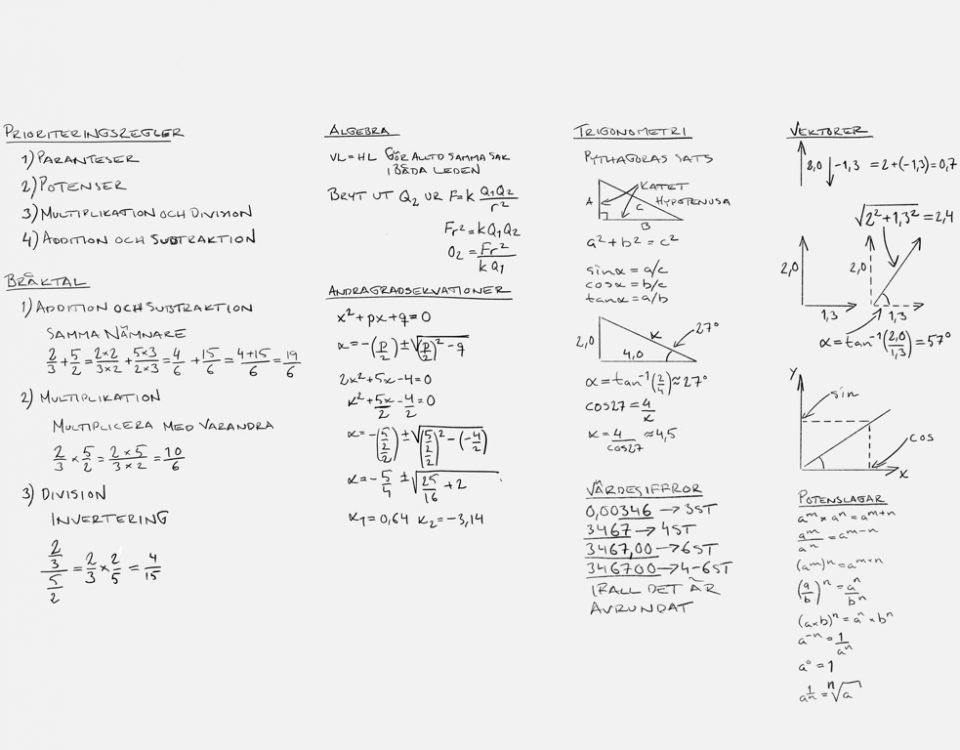 PRIORITERINGSREGLER
1) PARANTESER
2) POTENSER
3) MULTIPLIKATION OCH DIVISION
4) ADDITION OCH SUBTRAKTION
BRÅKTAL
1) ADDITION OCH SUBTRAKTION
SAMMA NÄMNARE
2/3 + 5/2 = 2×2/3×2 + 5×3/2×3 = 4/6 + 15/6 = 4+15/6 = 19/6
2) MULTIPLIKATION
MULTIPLICERA MED VARANDRA
2/3 × 5/2 = 2×5/3×2 = 10/6
3) DIVISION
INVERTERING
2/3 / 5/2 = 2/3 × 2/5 = 4/15
ALGEBRA
VL = HL GÖR ALLTID SAMMA SAK
I BÅDA LEDEN
BRYT UT Q₂ UR F = k Q₁Q₂/r²
Fr² = kQ₁Q₂
Q₂ = Fr²/kQ₁
ANDRAGRADSEKVATIONER
x² + px + q = 0
x = -(p/2) ± √((p/2)² - q)
2x² + 5x - 4 = 0
x² + 5x/2 - 4/2 = 0
x = -(5/2/2) ± √((5/2/2)² - (-4/2))
x = -5/4 ± √(25/16 + 2)
x₁ = 0,64 x₂ = -3,14
TRIGONOMETRI
PYTHAGORAS SATS
KATET
HYPOTENUSA
A
C
B
a² + b² = c²
sin α = a/c
cos α = b/c
tan α = a/b
x
27°
2,0
4,0
α = tan⁻¹(2/4) ≈ 27°
cos27 = 4/x
x = 4/cos27 ≈ 4,5
VÄRDESIFFROR
0,00346 → 3ST
3467 → 4ST
3467,00 → 6ST
346700 → 4-6ST
IFALL DET ÄR
AVRUNDAT
VEKTORER
2,0 -1,3 = 2+(-1,3) = 0,7
√(2² + 1,3²) = 2,4
2,0
2,0
1,3
1,3
α = tan⁻¹(2,0/1,3) = 57°
Y
sin
cos
X
POTENSLAGAR
aᵐ × aⁿ = aᵐ⁺ⁿ
aᵐ/aⁿ = aᵐ⁻ⁿ
(aᵐ)ⁿ = aᵐˣⁿ
(a/b)ⁿ = aⁿ/bⁿ
(a×b)ⁿ = aⁿ × bⁿ
a⁻ⁿ = 1/aⁿ
a⁰ = 1
a^(1/n) = ⁿ√a